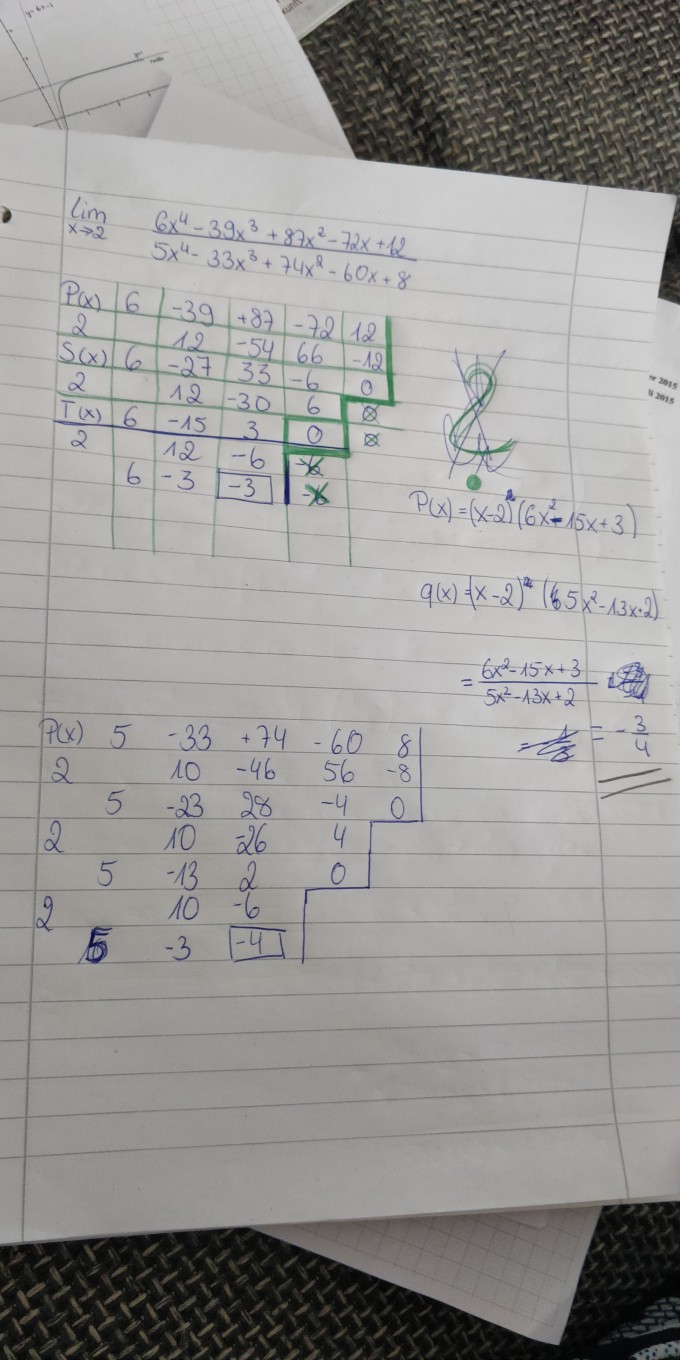 y=6x-1
kunft
lim
x→2
6x⁴ - 39x³ + 87x² - 72x + 12
5x⁴ - 33x³ + 74x² - 60x + 8
P(x) 6 -39 +87 -72 12
2 12 -54 66 -12
S(x) 6 -27 33 -6 0
2 12 -30 6
T(x) 6 -15 3 0
2 12 -6
6 -3 -3
2015
2015
P(x) = (x-2)² (6x² - 15x + 3)
q(x) = (x-2)² (5x² - 13x + 2)
= 6x² - 15x + 3
5x² - 13x + 2
= - 3
4
P(x) 5 -33 +74 -60 8
2 10 -46 56 -8
5 -23 28 -4 0
2 10 -26 4
5 -13 2 0
2 10 -6
5 -3 -4